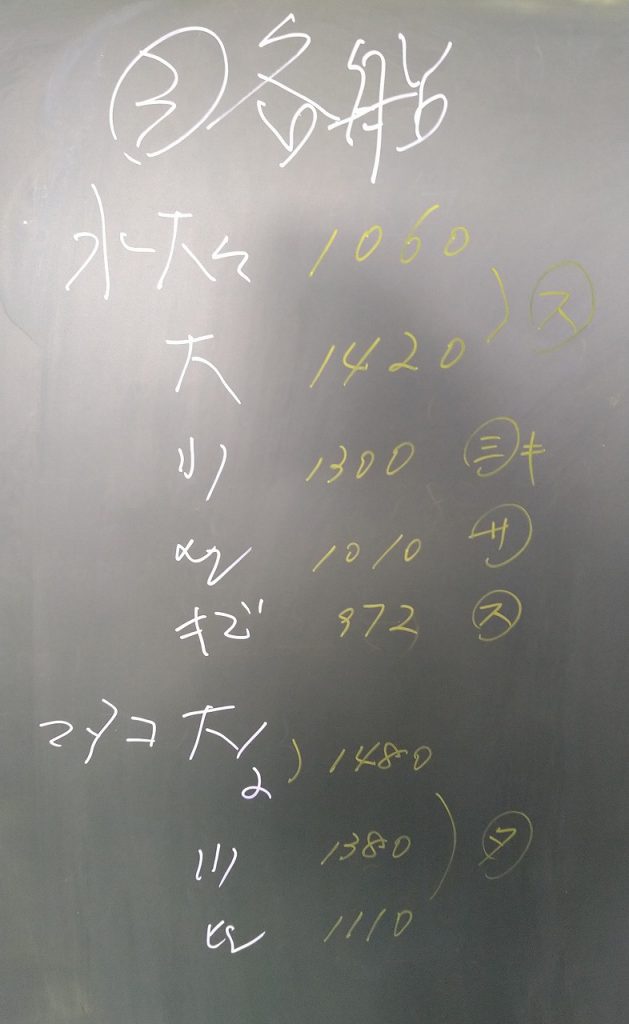 各船
水 大々 1060
大 1420 ㋜
小 1300 ㊂キ
1010 ㋚
キズ 972 ㋜
マダコ 大/2 1480
小 1380 ㋟
1110